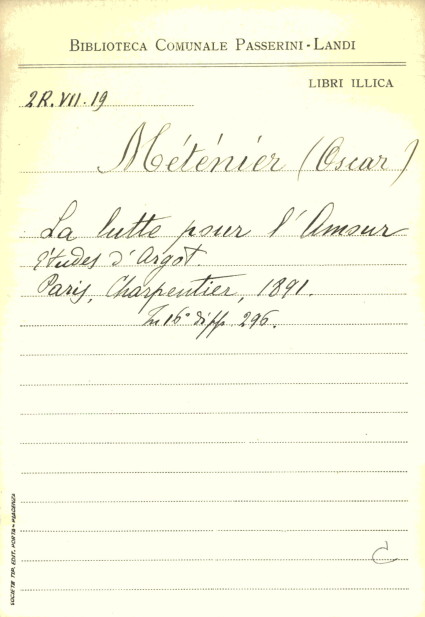 BIBLIOTECA COMUNALE PASSERINI-LANDI
LIBRI ILLICA
2R.VII.19
Méténier (Oscar)
La lutte pour l'Amour
Études d'Argot.
Paris, Charpentier, 1891.
In 16° di pp. 296.
C
SOCIETÀ TIP. EDIT. PORTA - PIACENZA